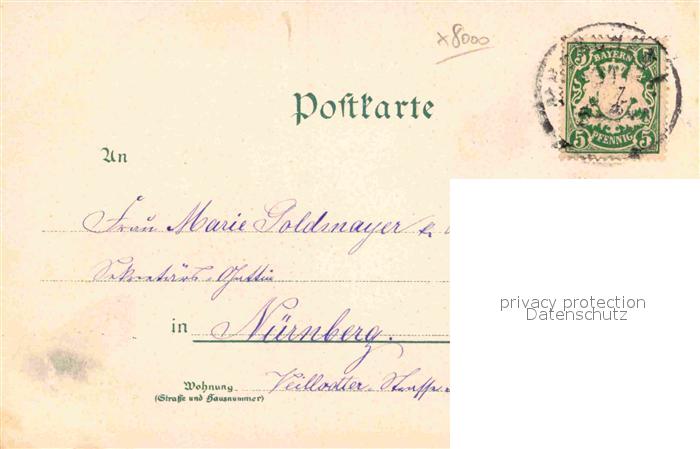 x8000
5 BAYERN 5
5 PFENNIG 5
Postkarte
An
Frau Marie Goldmayer k.
Sekretärs-Gattin
in Nürnberg.
Wohnung
(Straße und Hausnummer)
Veillodter-Strasse
privacy protection
Datenschutz